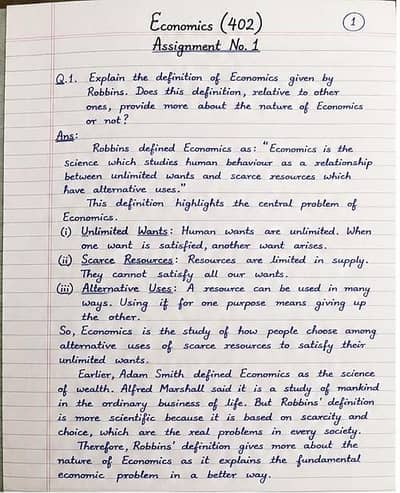 Economics (402)
1
Assignment No. 1
Q.1. Explain the definition of Economics given by
Robbins. Does this definition, relative to other
ones, provide more about the nature of Economics
or not?
Ans:
Robbins defined Economics as: "Economics is the
science which studies human behaviour as a relationship
between unlimited wants and scarce resources which
have alternative uses."
This definition highlights the central problem of
Economics.
(i) Unlimited Wants: Human wants are unlimited. When
one want is satisfied, another want arises.
(ii) Scarce Resources: Resources are limited in supply.
They cannot satisfy all our wants.
(iii) Alternative Uses: A resource can be used in many
ways. Using if for one purpose means giving up
the other.
So, Economics is the study of how people choose among
alternative uses of scarce resources to satisfy their
unlimited wants.
Earlier, Adam Smith defined Economics as the science
of wealth. Alfred Marshall said it is a study of mankind
in the ordinary business of life. But Robbins' definition
is more scientific because it is based on scarcity and
choice, which are the real problems in every society.
Therefore, Robbins' definition gives more about the
nature of Economics as it explains the fundamental
economic problem in a better way.